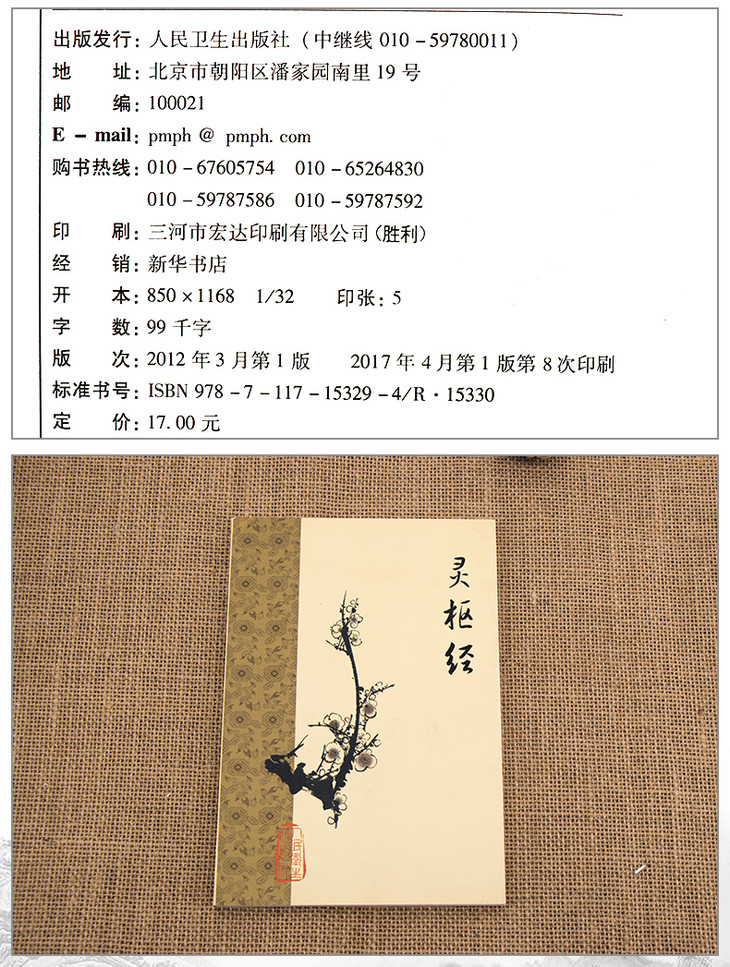 出版发行：人民卫生出版社（中继线 010-59780011）
地　　址：北京市朝阳区潘家园南里 19 号
邮　　编：100021
E - mail：pmph @ pmph. com
购书热线：010-67605754　010-65264830
010-59787586　010-59787592
印　　刷：三河市宏达印刷有限公司（胜利）
经　　销：新华书店
开　　本：850×1168　1/32　　印张：5
字　　数：99 千字
版　　次：2012 年 3 月第 1 版　　2017 年 4 月第 1 版第 8 次印刷
标准书号：ISBN 978-7-117-15329-4/R·15330
定　　价：17.00 元
灵枢经